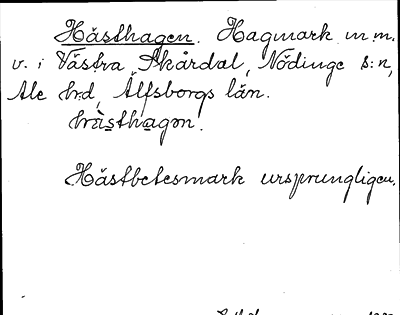 Hästhagen. Hagmark m.m.
v. i Västra Skårdal, Nödinge s:n,
Ale hrd, Älfsborgs län.
hràsthagon.
Hästbetesmark ursprungligen.